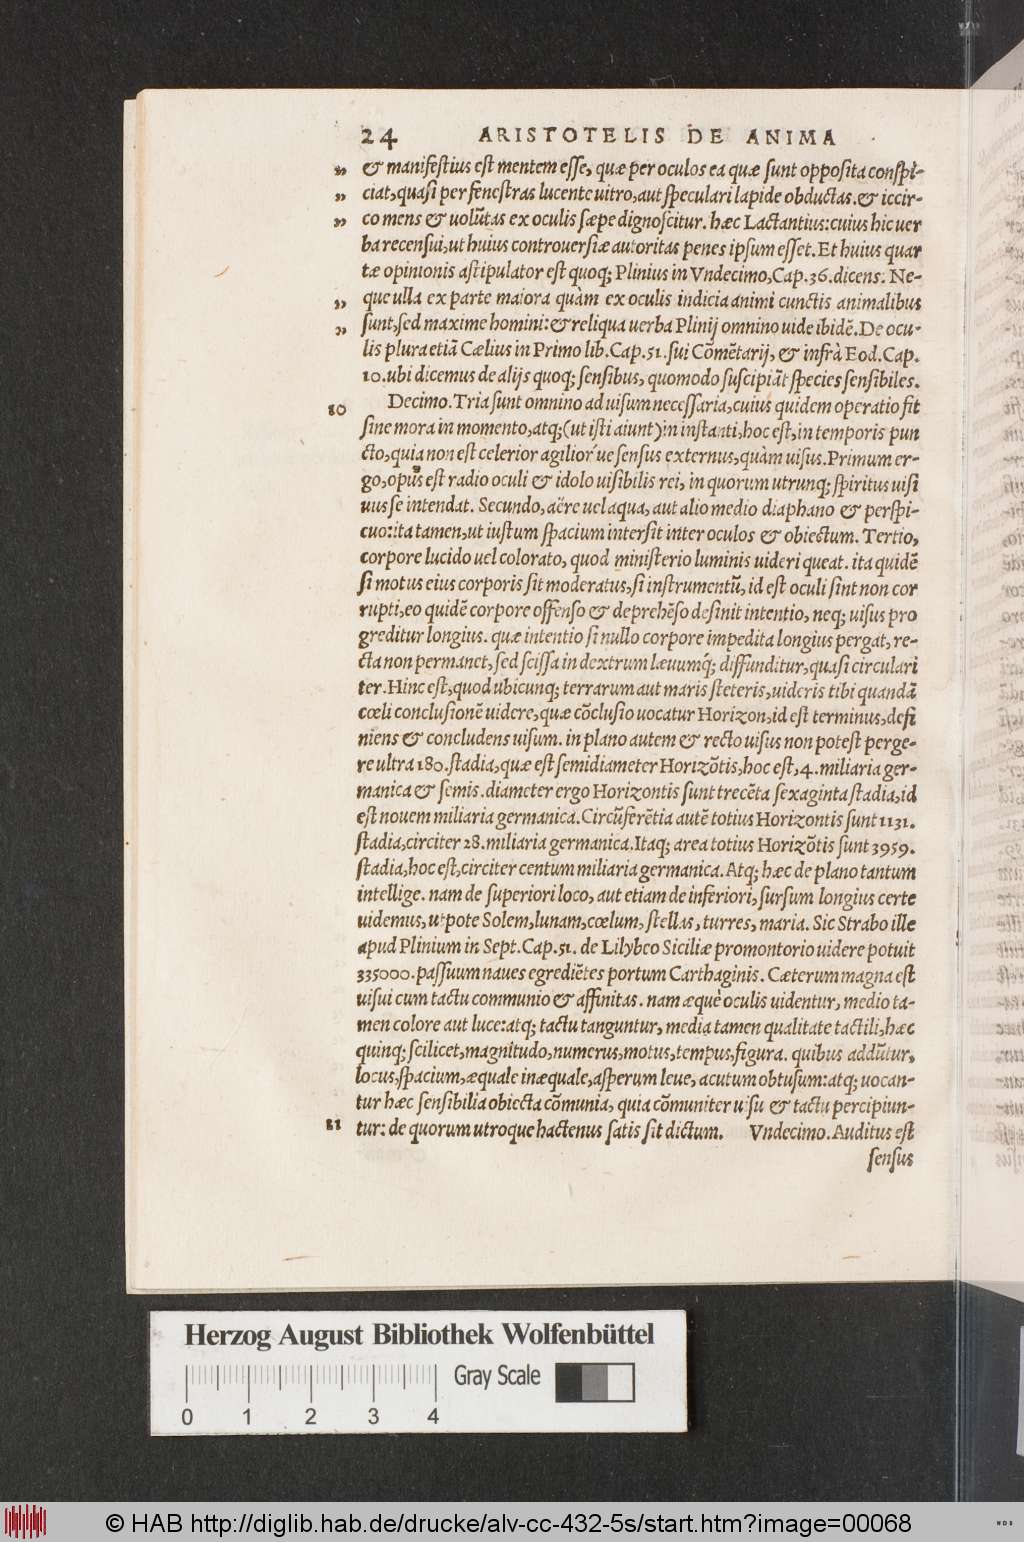 24 ARISTOTELIS DE ANIMA
„ & manifestius est mentem esse, quæ per oculos ea quæ sunt opposita conspi-
„ ciat, quasi per fenestras lucente uitro, aut speculari lapide obductas. & iccir-
„ co mens & uolūtas ex oculis sæpe dignoscitur. hæc Lactantius: cuius hic uer
ba recensui, ut huius controuersiæ autoritas penes ipsum esset. Et huius quar
tæ opinionis astipulator est quoq; Plinius in Vndecimo, Cap. 36. dicens. Ne-
„ que ulla ex parte maiora quàm ex oculis indicia animi cunctis animalibus
„ sunt, sed maxime homini: & reliqua uerba Plinij omnino uide ibidē. De ocu-
lis plura etiā Cælius in Primo lib. Cap. 51. sui Cōmētarij, & infrà Eod. Cap.
10. ubi dicemus de alijs quoq; sensibus, quomodo suscipiāt species sensibiles.
10 Decimo. Tria sunt omnino ad uisum necessaria, cuius quidem operatio fit
sine mora in momento, atq; (ut isti aiunt) in instanti, hoc est, in temporis pun
cto, quia non est celerior agilior´ue sensus externus, quàm uisus. Primum er-
go, opus est radio oculi & idolo uisibilis rei, in quorum utrunq; spiritus uisi
uus se intendat. Secundo, aëre uel aqua, aut alio medio diaphano & perspi-
cuo: ita tamen, ut iustum spacium intersit inter oculos & obiectum. Tertio,
corpore lucido uel colorato, quod ministerio luminis uideri queat. ita quidē
si motus eius corporis sit moderatus, si instrumentū, id est oculi sint non cor
rupti, eo quidē corpore offenso & deprehēso desinit intentio, neq; uisus pro
greditur longius. quæ intentio si nullo corpore impedita longius pergat, re-
cta non permanet, sed scissa in dextrum læuumq́; diffunditur, quasi circulari
ter. Hinc est, quod ubicunq; terrarum aut maris steteris, uideris tibi quandā
cœli conclusionē uidere, quæ cōclusio uocatur Horizon, id est terminus, defi
niens & concludens uisum. in plano autem & recto uisus non potest perge-
re ultra 180. stadia, quæ est semidiameter Horizōtis, hoc est, 4. miliaria ger-
manica & semis. diameter ergo Horizontis sunt trecēta sexaginta stadia, id
est nouem miliaria germanica. Circūferētia autē totius Horizontis sunt 1131.
stadia, circiter 28. miliaria germanica. Itaq; area totius Horizōtis sunt 3959.
stadia, hoc est, circiter centum miliaria germanica. Atq; hæc de plano tantum
intellige. nam de superiori loco, aut etiam de inferiori, sursum longius certe
uidemus, utpote Solem, lunam, cœlum, stellas, turres, maria. Sic Strabo ille
apud Plinium in Sept. Cap. 51. de Lilybeo Siciliæ promontorio uidere potuit
335000. passuum naues egrediētes portum Carthaginis. Cæterum magna est
uisui cum tactu communio & affinitas. nam æquè oculis uidentur, medio ta-
men colore aut luce: atq; tactu tanguntur, media tamen qualitate tactili, hæc
quinq; scilicet, magnitudo, numerus, motus, tempus, figura. quibus addūtur,
locus, spacium, æquale inæquale, asperum leue, acutum obtusum: atq; uocan-
tur hæc sensibilia obiecta cōmunia, quia cōmuniter uisu & tactu percipiun-
11 tur: de quorum utroque hactenus satis sit dictum. Vndecimo. Auditus est
sensus
Herzog August Bibliothek Wolfenbüttel
Gray Scale
0 1 2 3 4
© HAB http://diglib.hab.de/drucke/alv-cc-432-5s/start.htm?image=00068